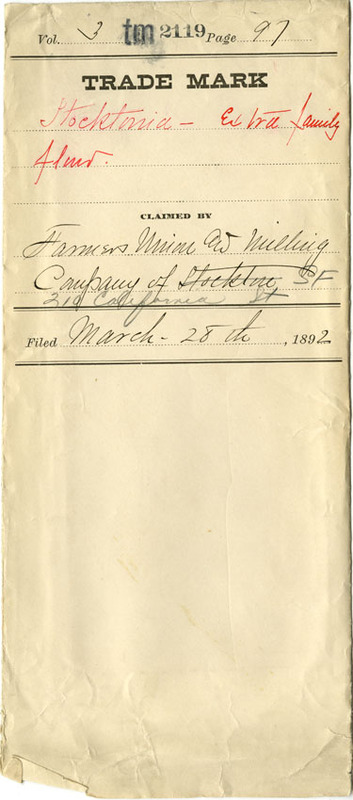 Vol. 3 tm 2119 Page 97
TRADE MARK
Stocktonia - Extra family
flour.
CLAIMED BY
Farmers Union and Milling
Company of Stockton, SF
210 California St
Filed March - 28th, 1892